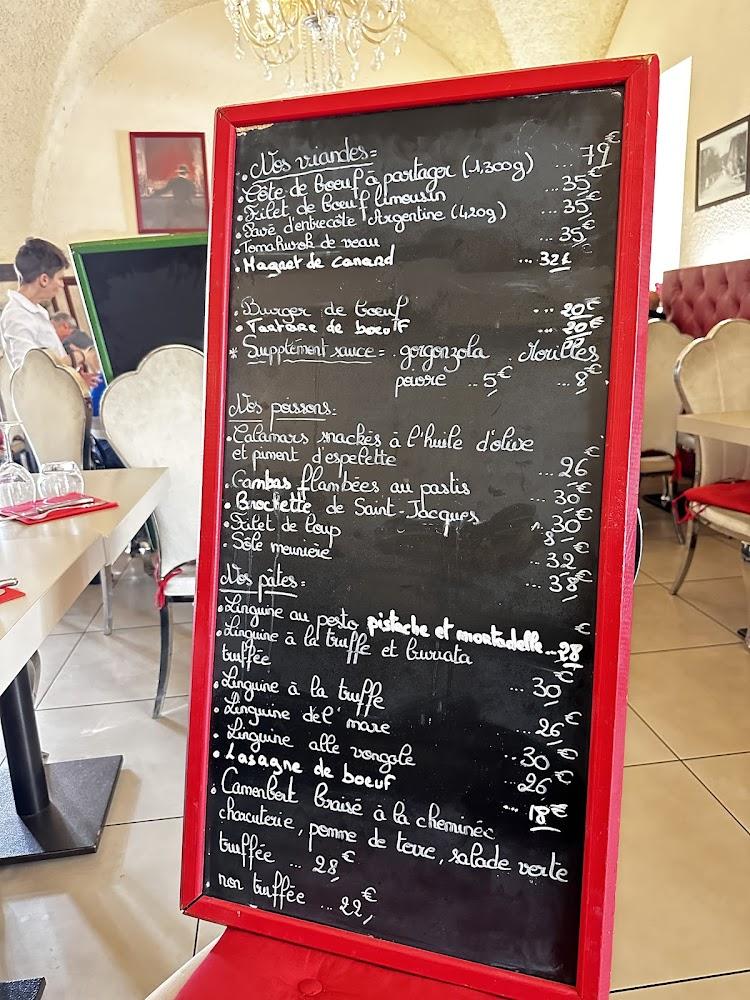 Nos viandes:
• Côte de boeuf à partager (1,300g) ... 79€
• Filet de boeuf limousin ... 35€
• Pavé d'entrecôte Argentine (420g) ... 35€
• Tomahwok de veau ... 35€
• Magnet de canard ... 32€
• Burger de boeuf ... 20€
• Tartare de boeuf ... 20€
* Supplément sauce = gorgonzola Morilles
poivre .. 5€ .. 8€
Nos poissons:
• Calamars snackés à l'huile d'olive
et piment d'espelette ... 26€
• Gambas flambées au pastis ... 30€
• Brochette de Saint-Jacques ... 30€
• Filet de loup ... 32€
• Sôle meunière ... 38€
Nos pâtes:
• Linguine au pesto pistache et mortadelle ... 28€
• Linguine à la truffe et burrata
truffée ... 30€
• Linguine à la truffe ... 26€
• Linguine del' mare ... 30€
• Linguine alle vongole ... 26€
• Lasagne de boeuf ... 18€
• Camenbert braisé à la cheminée
charcuterie, pomme de terre, salade verte
truffée ... 28€
non truffée ... 22€